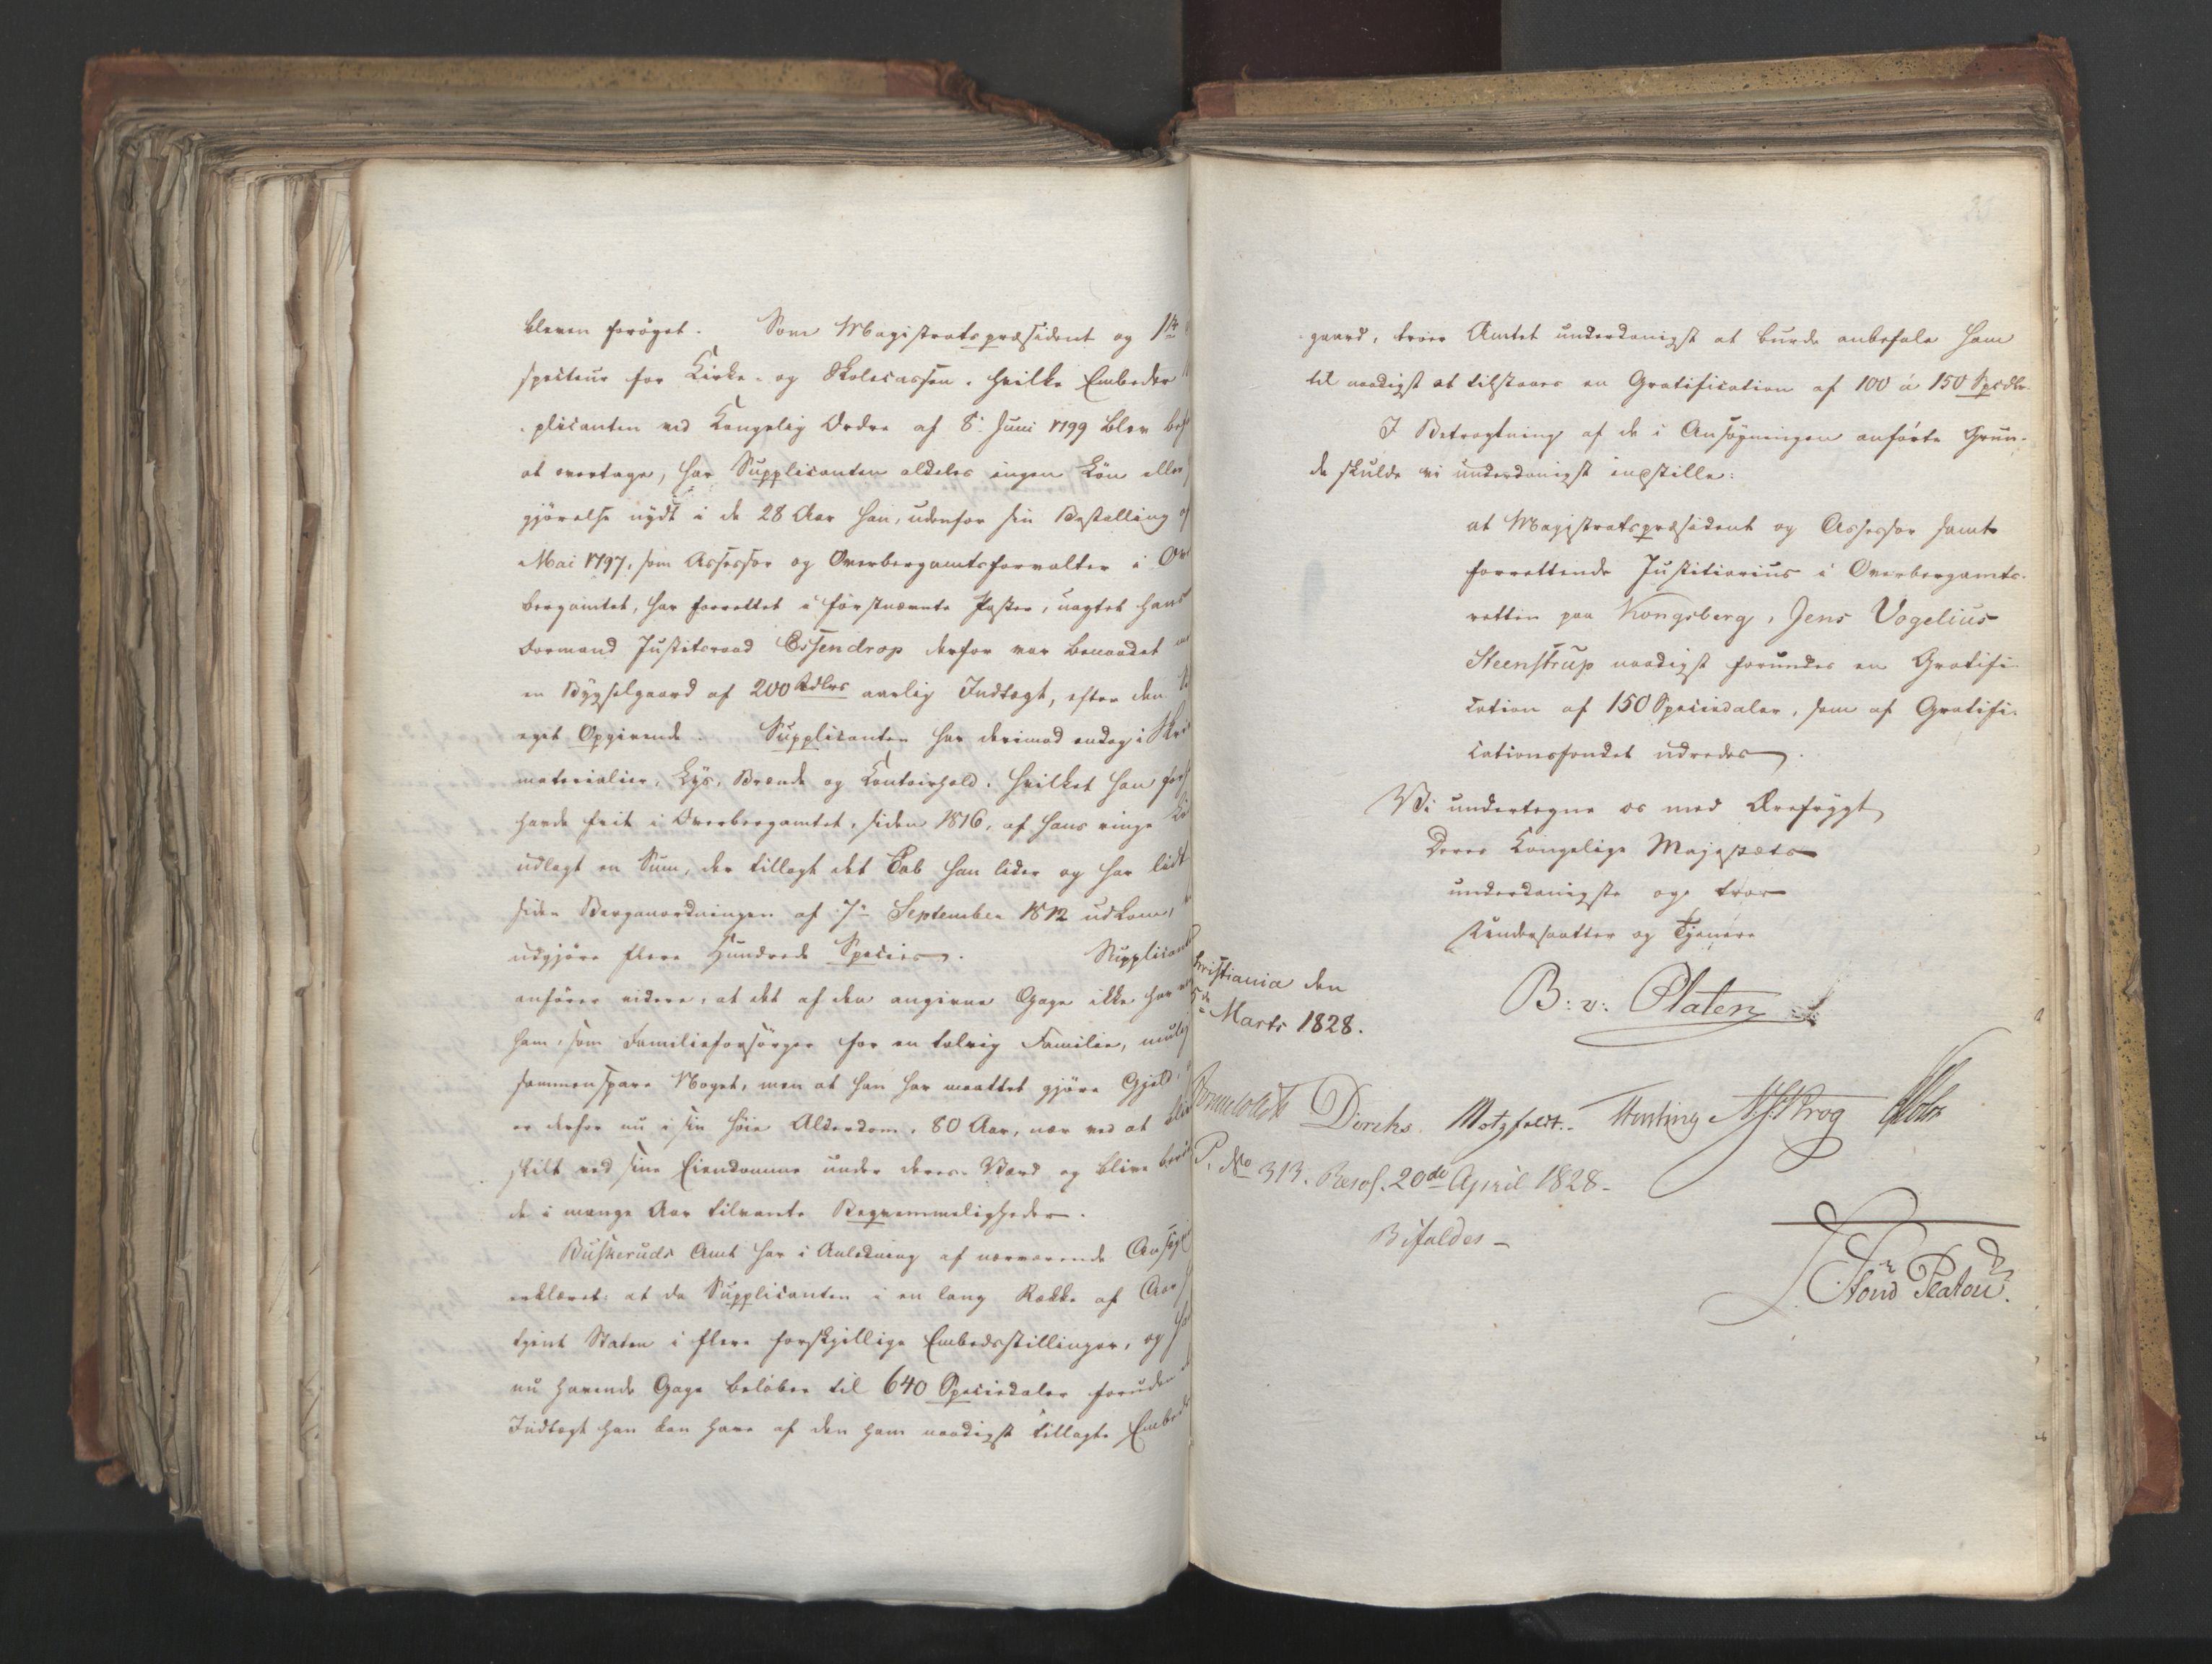 bleven forøget. Som Magistratspræsident og 1ste
specteur for Kirke- og Skolecassen, hvilke Embeder
plicanten ved Kongelig Ordre af 8. Juni 1799 blev
at overtage, har Supplicanten aldeles ingen Løn eller
gjørelse nydt i de 28 Aar han, udenfor sin Bestalling
Mai 1797, som Assessor og Overbergamtsforvalter i
bergamtet, har forrettet i førstnævnte Poster, uagtet hans
Formand Justitsraad Essendrop derfor var benaadet
en Bygselgaard af 200 Rdlrs aarlig Indtægt, efter den
eget Opgivende. Supplicanten har derimod endog i
materialier, Lys, Brænde og Contoirhold, hvilket han
havde frit i Overbergamtet, siden 1816, af hans ringe
udlagt en Sum, der tillagt det Tab han lider og har lidt
siden Berganordningen af 7de September 1812 udkom,
udgjøre flere Hundrede Species. Supplicant
anfører videre, at det af den angivne Gage ikke har
ham, som Familieforsørger for en talrig Familie,
sammenspare Noget, men at han har maattet gjøre Gjeld,
er derfor nu i sin høie Alderdom, 80 Aar, nær ved at
skilt ved sine Eiendomme under deres Værd og blive
de i mange Aar tilvante Beqvemmeligheder.
Buskeruds Amt har i Anledning af nærværende
erklæret: at da Supplicanten i en lang Række af Aar
tjent Staten i flere forskjellige Embedsstillinger, og
nu havende Gage beløber til 640 Speciedaler foruden
Indtægt han kan have af den ham naadigst tillagte
gaard, troer Amtet underdanigst at burde anbefale ham
til naadigst at tilstaaes en Gratification af 100 à 150 Spdlr.
I Betragtning af de i Ansøgningen anførte Grun-
de skulde vi underdanigst indstille:
at Magistratspræsident og Assessor samt
forrettende Justitiarius i Overbergamts-
retten paa Kongsberg, Jens Vogelius
Steenstrup naadigst forundes en Gratifi-
cation af 150 Speciedaler, som af Gratifi-
cationsfondet udredes.
Vi undertegne os med Ærefrygt
Deres Kongelige Majestæts
underdanigste og troe
Undersaatter og Tjenere
Christiania den
5te Marts 1828.
B: v: Platen
Diriks. Motzfeldt. Hosting Krog
P. No 313. Resol. 20de April 1828 -
Bifaldes -